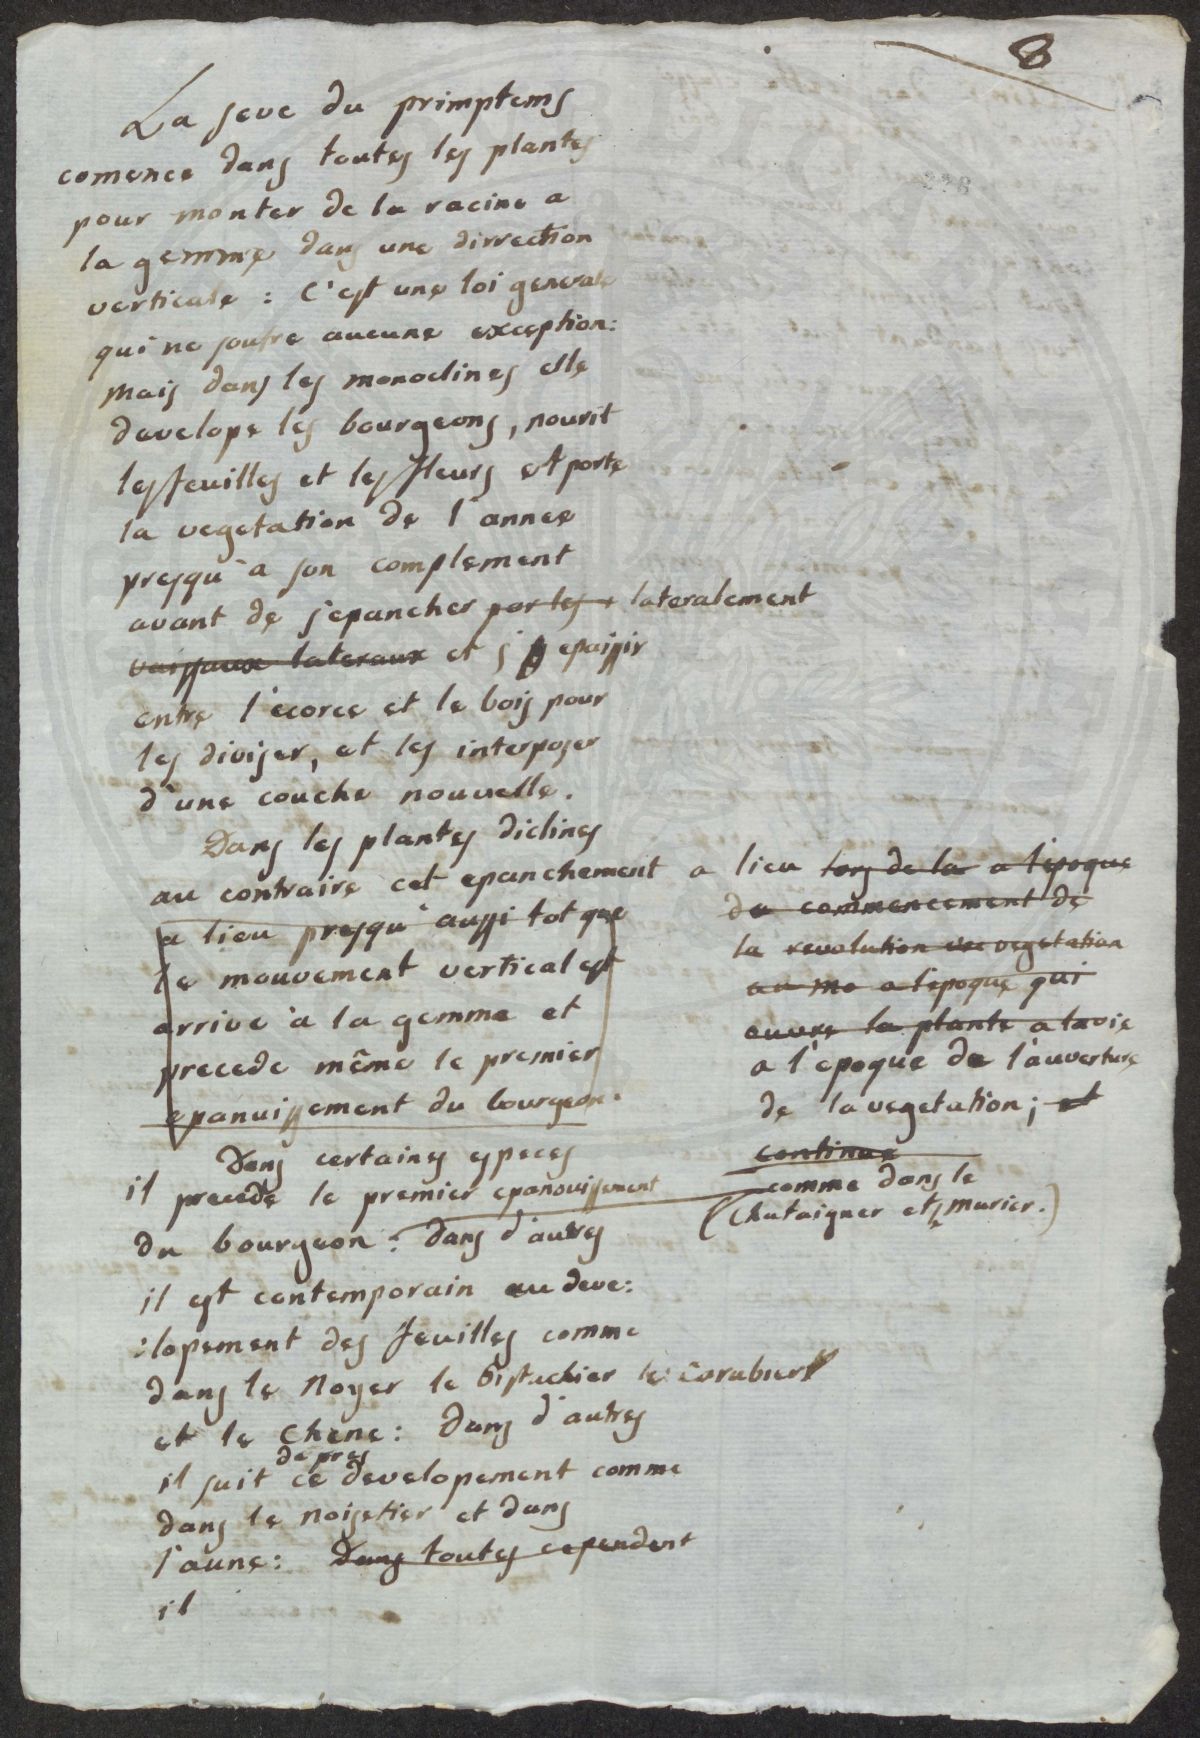 8
228
La seve du primptems
comence dans toutes les plantes
pour monter de la racine a
la gemme dans une dirrection
verticale : C'est une loi generale
qui ne soufre aucune exception:
mais dans les monoclines elle
develope les bourgeons, nourit
les feuilles et les fleurs et porte
la vegetation de l'annee
presqu'a son complement
avant de s'epancher par les lateralement
vaisseaux lateraux et s'epaissir
entre l'ecorce et le bois pour
les diviser, et les interposer
d'une couche nouvelle.
Dans les plantes diclines
au contraire cet epanchement a lieu lors de la a l'epoque
du commencement de
la revolution vegetation
au mo a l'epoque qui
ouvre la plante a la vie
a l'epoque de l'auverture
de la vegetation; et
continue
a lieu presqu'aussi tot que
le mouvement vertical est
arrive à la gemme et
precede même le premier
epanuissement du bourgeon.
Dans certaines especes
il precede le premier epanouissement
du bourgeon. comme dans le
(Chataigner et murier.)
dans d'autres
il est contemporain au deve:
:lopement des feuilles comme
dans le Noyer le Pistachier le Carubier
et le Chene: Dans d'autres
il suit de pres
ce developement comme
dans le Noisetier et dans
l'aune: Dans toutes cependent
il